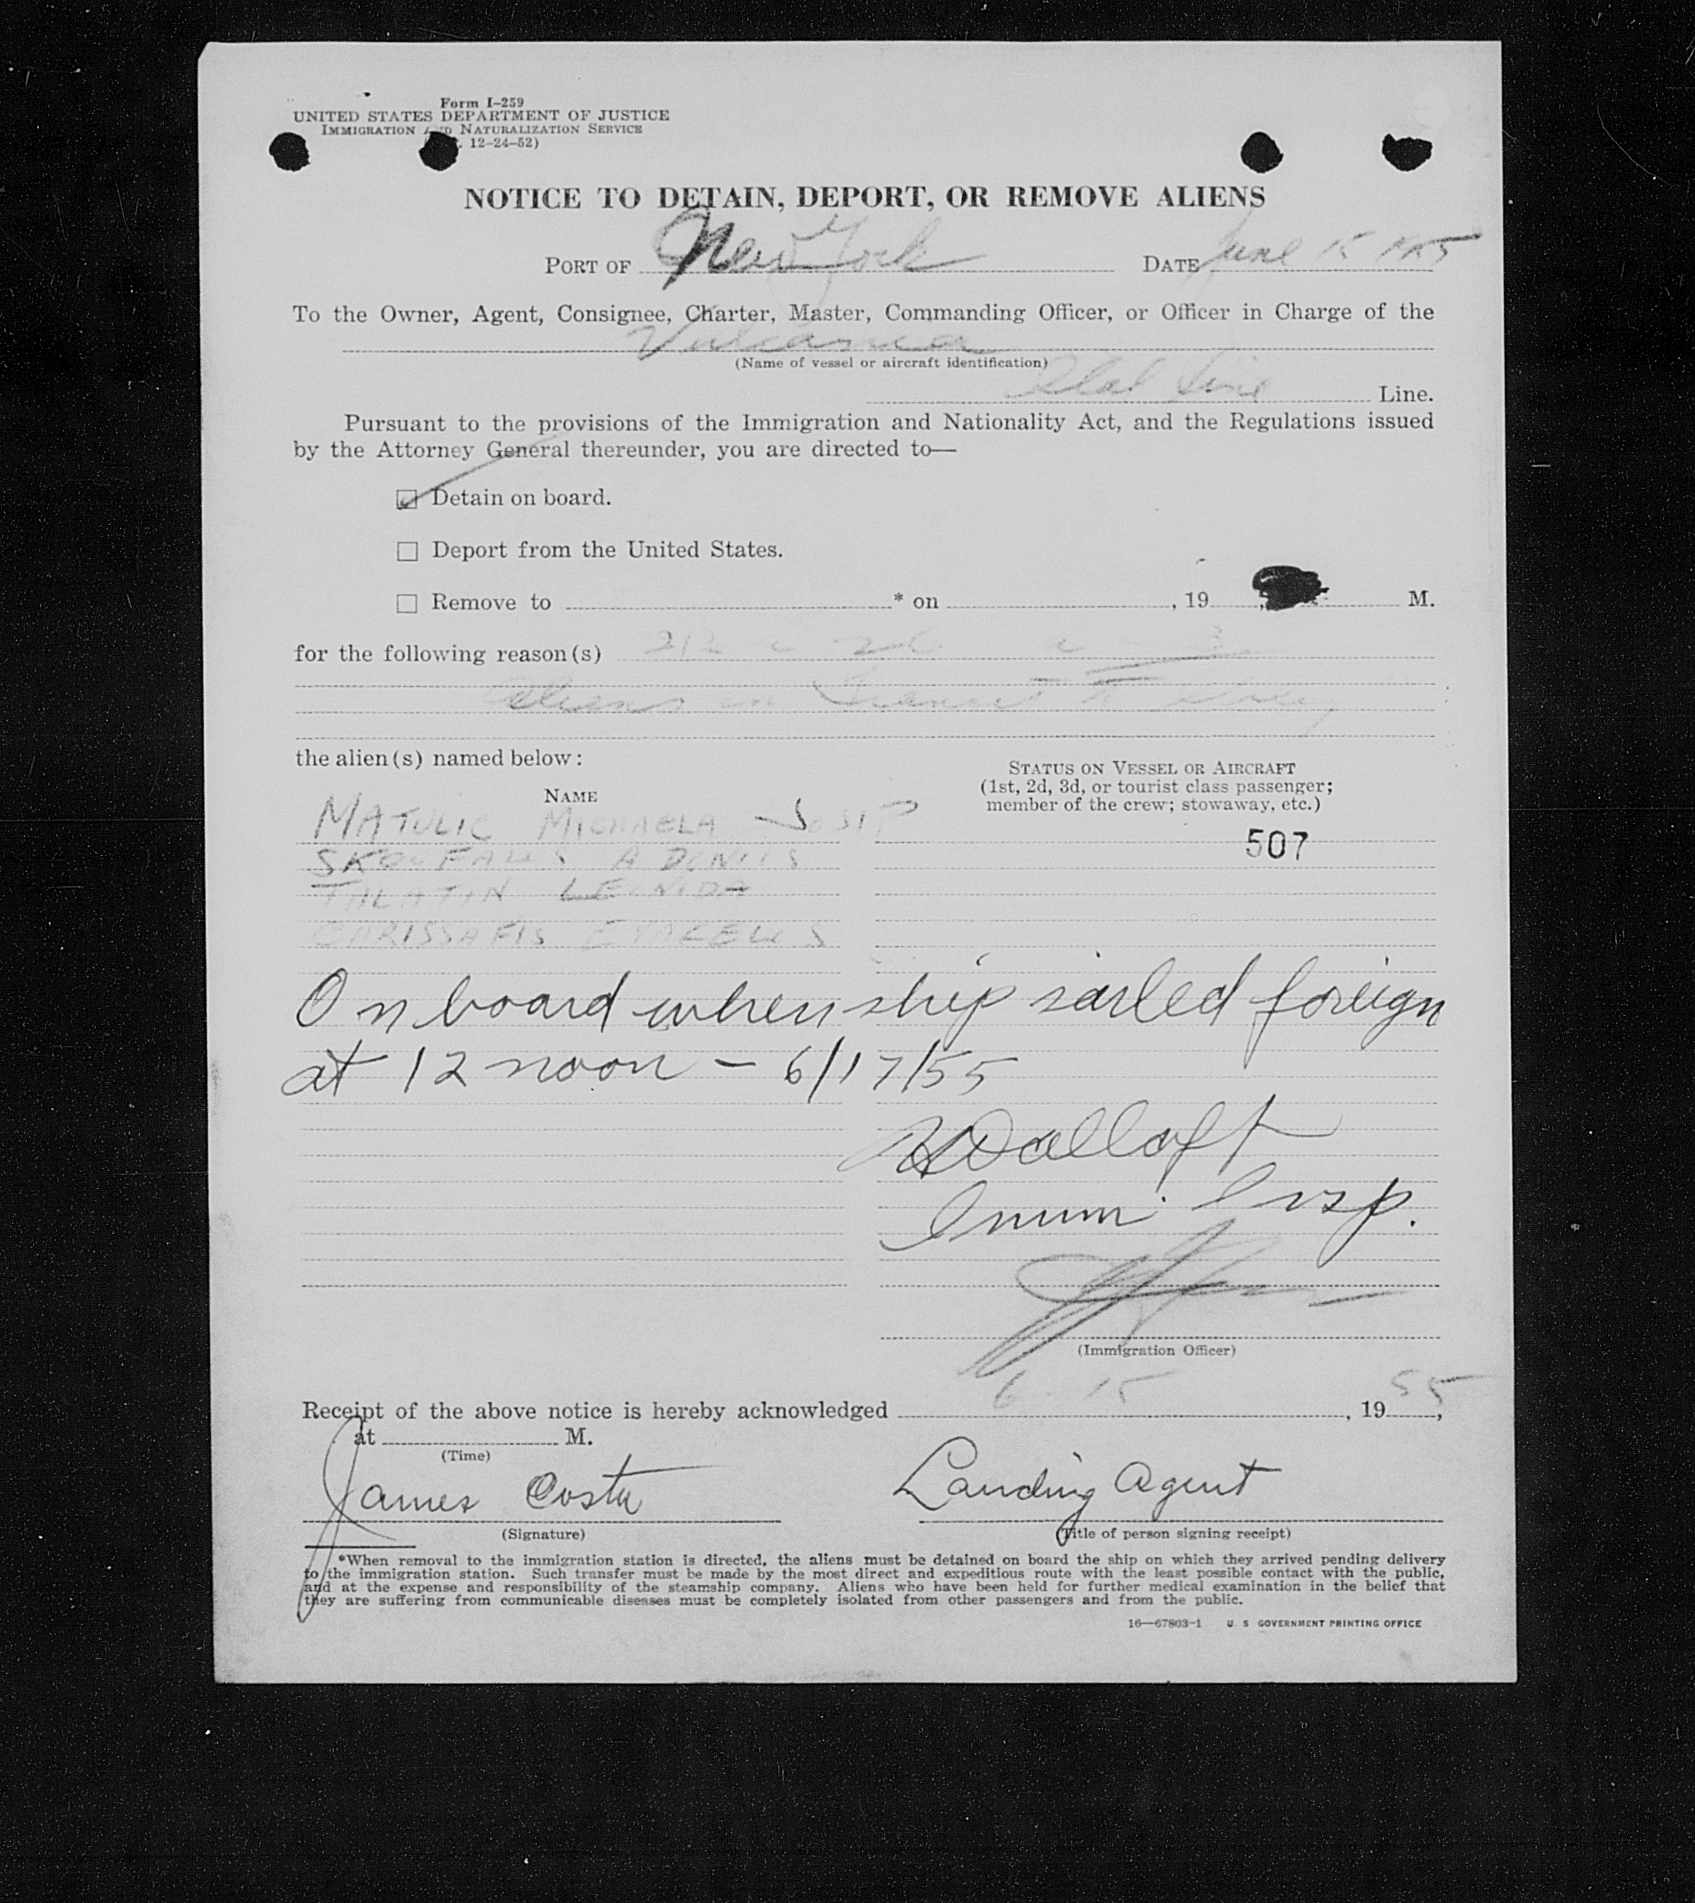 Form I-259
UNITED STATES DEPARTMENT OF JUSTICE
IMMIGRATION AND NATURALIZATION SERVICE
12-24-52)
NOTICE TO DETAIN, DEPORT, OR REMOVE ALIENS
PORT OF New York DATE June 15 1955
To the Owner, Agent, Consignee, Charter, Master, Commanding Officer, or Officer in Charge of the
Vulcania
(Name of vessel or aircraft identification)
Ital Line Line.
Pursuant to the provisions of the Immigration and Nationality Act, and the Regulations issued
by the Attorney General thereunder, you are directed to—
Detain on board.
Deport from the United States.
Remove to * on , 19 , M.
for the following reason(s) 212
Aliens in Transit to Italy
the alien(s) named below:
NAME
STATUS ON VESSEL OR AIRCRAFT
(1st, 2d, 3d, or tourist class passenger;
member of the crew; stowaway, etc.)
MATULIC MICHAELA JOSIP
507
On board when ship sailed foreign
at 12 noon - 6/17/55
Imm. Insp.
(Immigration Officer)
Receipt of the above notice is hereby acknowledged 6 15, 19 55,
at M.
(Time)
James Costa
Landing Agent
(Signature)
(Title of person signing receipt)
*When removal to the immigration station is directed, the aliens must be detained on board the ship on which they arrived pending delivery
to the immigration station. Such transfer must be made by the most direct and expeditious route with the least possible contact with the public,
and at the expense and responsibility of the steamship company. Aliens who have been held for further medical examination in the belief that
they are suffering from communicable diseases must be completely isolated from other passengers and from the public.
16—67803-1 U. S GOVERNMENT PRINTING OFFICE